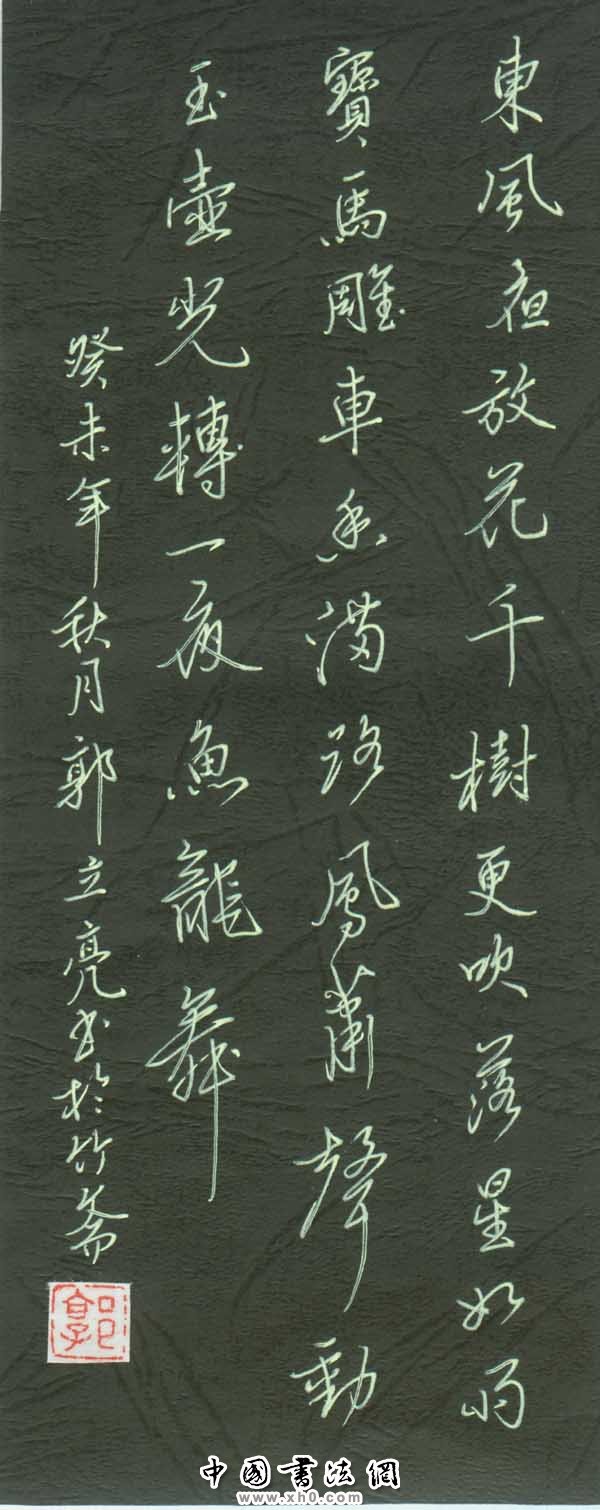 東風夜放花千樹更吹落星如雨
寶馬雕車香滿路鳳簫聲動
玉壺光轉一夜魚龍舞
癸未年秋月郭立亮书於竹斋
郭
中国书法網
www.xh0.com